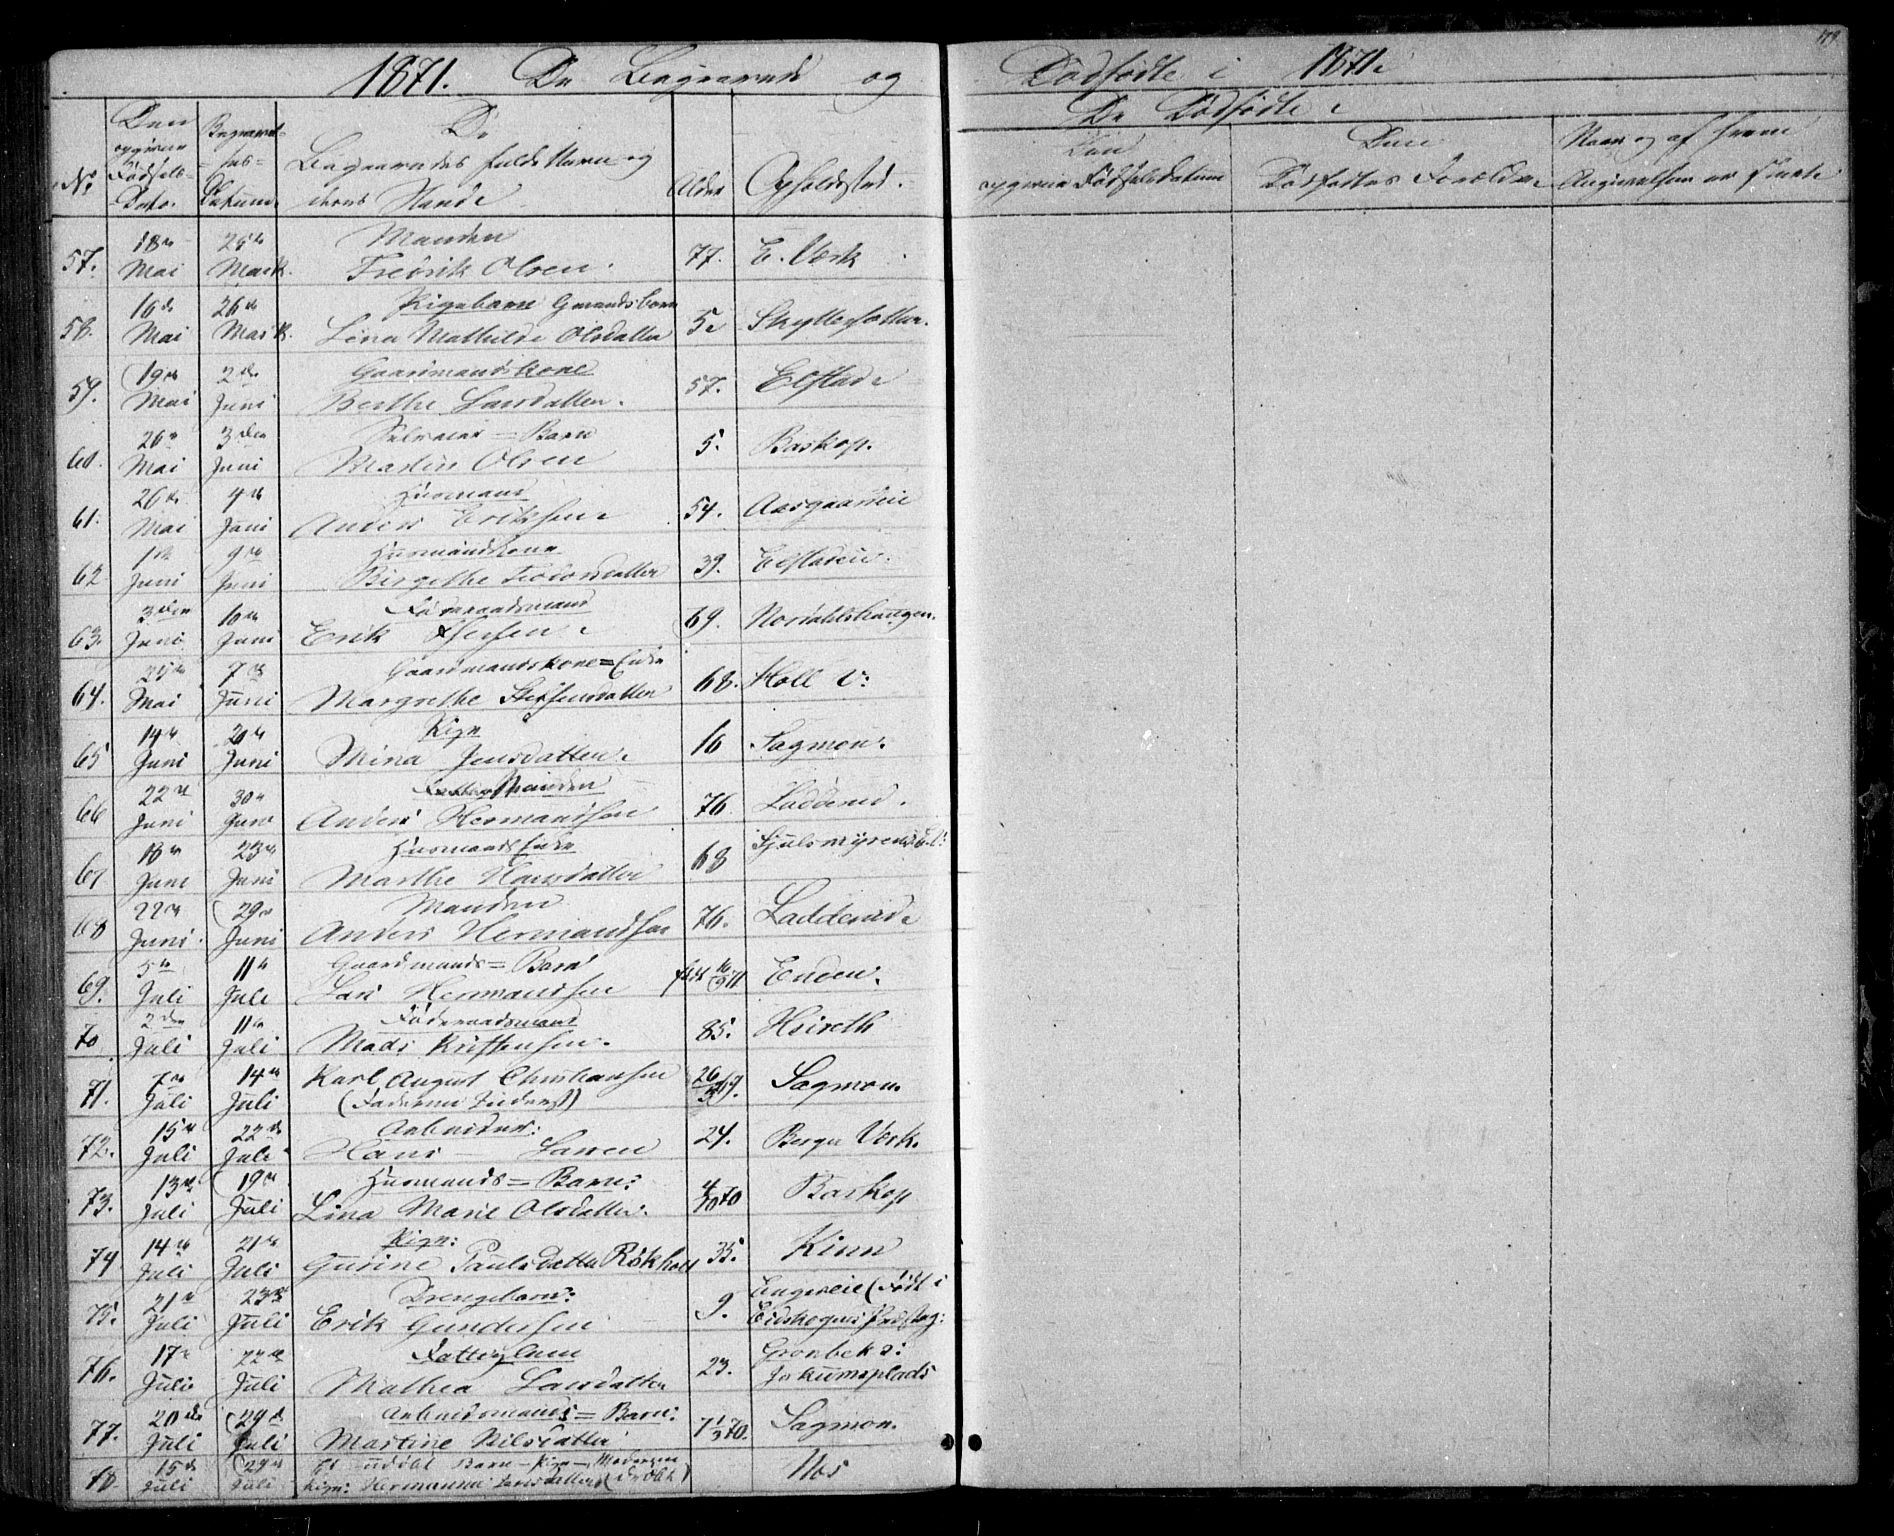 179
1871. De Begravede og Dødfødte i 1871.
De Dødfødte.
No.
Den opgivne Fødsels- Dato.
Begravel- ses- Datum.
De Begravedes fulde Navn og deres Stand
Alder
Opholdssted.
Den opgivne Fødselsdatum
Den Dødfødtes Forældre
Naar og af hvem Angivelsen er skeet
57. 18de Mai 25de Mai Manden Fredrik Olsen. 77. E. Værk
58. 16de Mai 26de Mai Pigebarn Gaardm. barn Lina Mathilde Olsdatter 5. Skyttesætter.
59. 19de Mai 2den Juni Gaardmandskone Berthe Larsdatter. 57. Elstad
60. 26de Mai 3den Juni Selveier = Barn Martin Olsen 5. Baskop.
61. 26de Mai 4de Juni Husmand Anders Eriksen 54. Aasgaareie
62 1ste Juni 9de Juni Husmandskone Birgethe Tosdatter 39. Elstadeie.
63. 3den Juni 10de Juni Føderaadsmand Erik 69. Nordahlshaugen.
64. 25de Mai 7de Juni Gaardmandskone = Enke Margrethe Steffensdatter 68. Holl V:
65 14de Juni 20de Juni Pige Mina Jensdatter. 16 Sagmoen.
66 22de Juni 30te Juni Manden Anders Hermandsen 76. Ladderud.
67 18de Juni 23de Juni Husmands Enke Marthe Hansdatter 68
68 22de Juni. 29de Juni Manden Anders Hermandsen 76. Ladderud
69. 5te Juli 11te Juli Gaardmands = Barn Lars Hermandsen født 10/9 71 Enden.
70 2den Juli 11te Juli Føderaadsmand Mads Kristensen. 85. Hvireth
71. 7de Juli 14de Juli Karl August Christiansen 26/3 69. Sagmoen.
72. 15de Juli 22de Juli Arbeider: Hans Larsen 24. Berger Værk.
73. 13de Juli 19de Juli Husmands = Barn: Lina Marie Olsdatter. 4/10 70 Baskop
74 14de Juli 21de Juli Pige: Gurine Paulsdatter Rökholt 35. Kinn
75. 21de Juli 23de Juli Drengebarn: Erik Gundersen 9. Engereie (Født i Eidskogens Præsteg:
76. 17de Juli 22de Juli Fattiglem Mathea Larsdatter 23. Grønbek Jokumsplads
77. 20de Juli 29de Juli Arbeidsmands = Barn: Martine Nilsdatter 1/3 70. Sagmoen.
78. 15de Juli 29de Juli Et udøbt Barn – Pige – Moderen Pige: Hermanne Larsdatter Nos